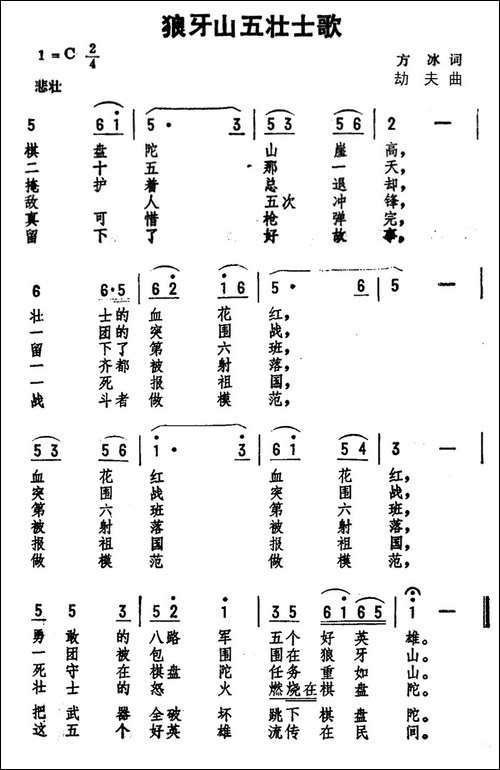 狼牙山五壮士歌
1=C 2/4
方 冰 词
悲壮
劫 夫 曲
5 6 i | 5· 3 | 5 3 5 6 | 2 — |
棋 盘 陀 山 崖 高,
二 十 五 那 一 天,
掩 护 着 总 退 却,
敌 人 五次 冲 锋,
真 可 惜 枪 弹 完,
留 下 了 好 故 事,
6 6·5 | 6 2 i 6 | 5· 6 | 5 — |
壮 士的 血 花 红,
一 团的 突 围 战,
留 下了 第 六 班,
一 齐都 被 射 落,
一 死 报 祖 国,
战 斗者 做 模 范,
5 3 5 6 | i· 3 | 6 i 5 4 | 3 — |
血 花 红 血 花 红,
突 围 战 突 围 战,
第 六 班 第 六 班,
被 射 落 被 射 落,
报 祖 国 报 祖 国,
做 模 范 做 模 范,
5 5 3 | 5·2 i | 3 5 6 i 6 5 | i — ‖
勇 敢 的 八 路 军 五 个 好 英 雄。
一 团 被 包 围 围 在 狼 牙 山。
死 守 在 棋 盘 陀 任 务 重 如 山。
壮 士 的 怒 火 燃 烧 在 棋 盘 陀。
把 武 器 全 破 坏 跳 下 棋 盘 陀。
这 五 个 好 英 雄 流 传 在 民 间。